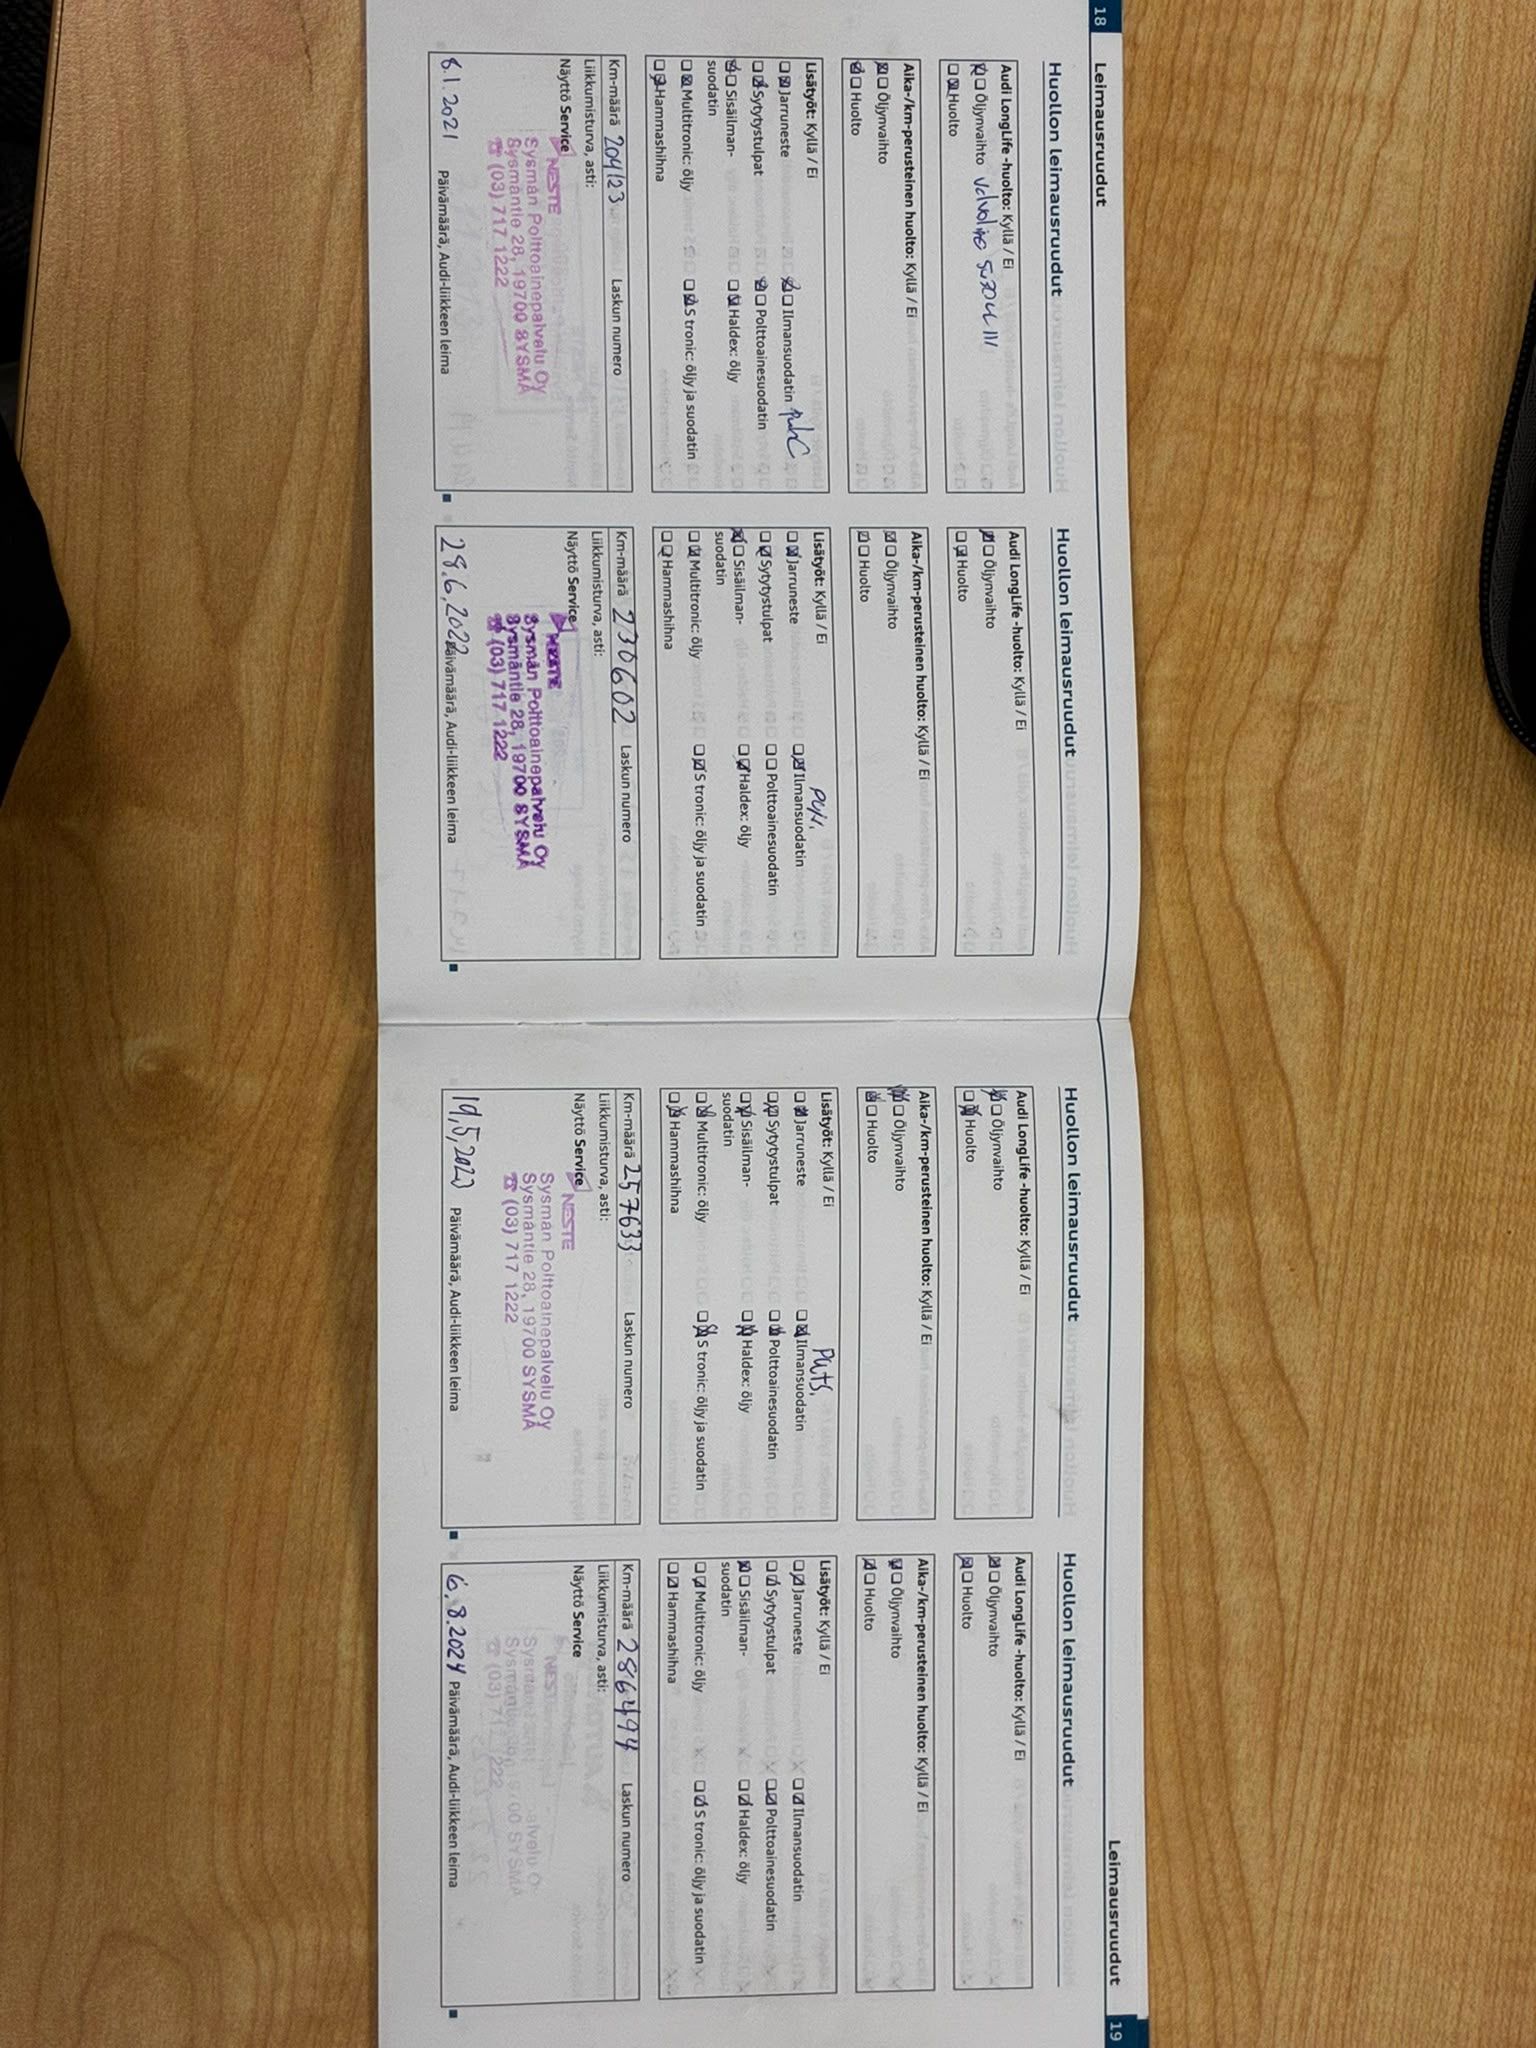 18
Leimausruudut
Huollon leimausruudut
Audi LongLife -huolto: Kyllä / Ei
Öljynvaihto 5w30
Huolto
Aika-/km-perusteinen huolto: Kyllä / Ei
Öljynvaihto
Huolto
Lisätyöt: Kyllä / Ei
Jarruneste Ilmansuodatin
Sytytystulpat Polttoainesuodatin
Sisäilman- Haldex: öljy
suodatin
Multitronic: öljy S tronic: öljy ja suodatin
Hammashihna
Km-määrä 204123 Laskun numero
Liikkumisturva, asti:
Näyttö Service
NESTE
Sysmän Polttoainepalvelu Oy
Sysmäntie 28, 19700 SYSMÄ
☎ (03) 717 1222
8.1.2021 Päivämäärä, Audi-liikkeen leima
Huollon leimausruudut
Audi LongLife -huolto: Kyllä / Ei
Öljynvaihto
Huolto
Aika-/km-perusteinen huolto: Kyllä / Ei
Öljynvaihto
Huolto
Lisätyöt: Kyllä / Ei
Jarruneste Ilmansuodatin
Sytytystulpat Polttoainesuodatin
Sisäilman- Haldex: öljy
suodatin
Multitronic: öljy S tronic: öljy ja suodatin
Hammashihna
Km-määrä 230602 Laskun numero
Liikkumisturva, asti:
Näyttö Service
NESTE
Sysmän Polttoainepalvelu Oy
Sysmäntie 28, 19700 SYSMÄ
☎ (03) 717 1222
28.6.2022 Päivämäärä, Audi-liikkeen leima
Leimausruudut
19
Huollon leimausruudut
Audi LongLife -huolto: Kyllä / Ei
Öljynvaihto
Huolto
Aika-/km-perusteinen huolto: Kyllä / Ei
Öljynvaihto
Huolto
Lisätyöt: Kyllä / Ei
Jarruneste Ilmansuodatin
Sytytystulpat Polttoainesuodatin
Sisäilman- Haldex: öljy
suodatin
Multitronic: öljy S tronic: öljy ja suodatin
Hammashihna
Km-määrä 257633 Laskun numero
Liikkumisturva, asti:
Näyttö Service
NESTE
Sysmän Polttoainepalvelu Oy
Sysmäntie 28, 19700 SYSMÄ
☎ (03) 717 1222
19,5,2023 Päivämäärä, Audi-liikkeen leima
Huollon leimausruudut
Audi LongLife -huolto: Kyllä / Ei
Öljynvaihto
Huolto
Aika-/km-perusteinen huolto: Kyllä / Ei
Öljynvaihto
Huolto
Lisätyöt: Kyllä / Ei
Jarruneste Ilmansuodatin
Sytytystulpat Polttoainesuodatin
Sisäilman- Haldex: öljy
suodatin
Multitronic: öljy S tronic: öljy ja suodatin
Hammashihna
Km-määrä 286494 Laskun numero
Liikkumisturva, asti:
Näyttö Service
6.8.2024 Päivämäärä, Audi-liikkeen leima